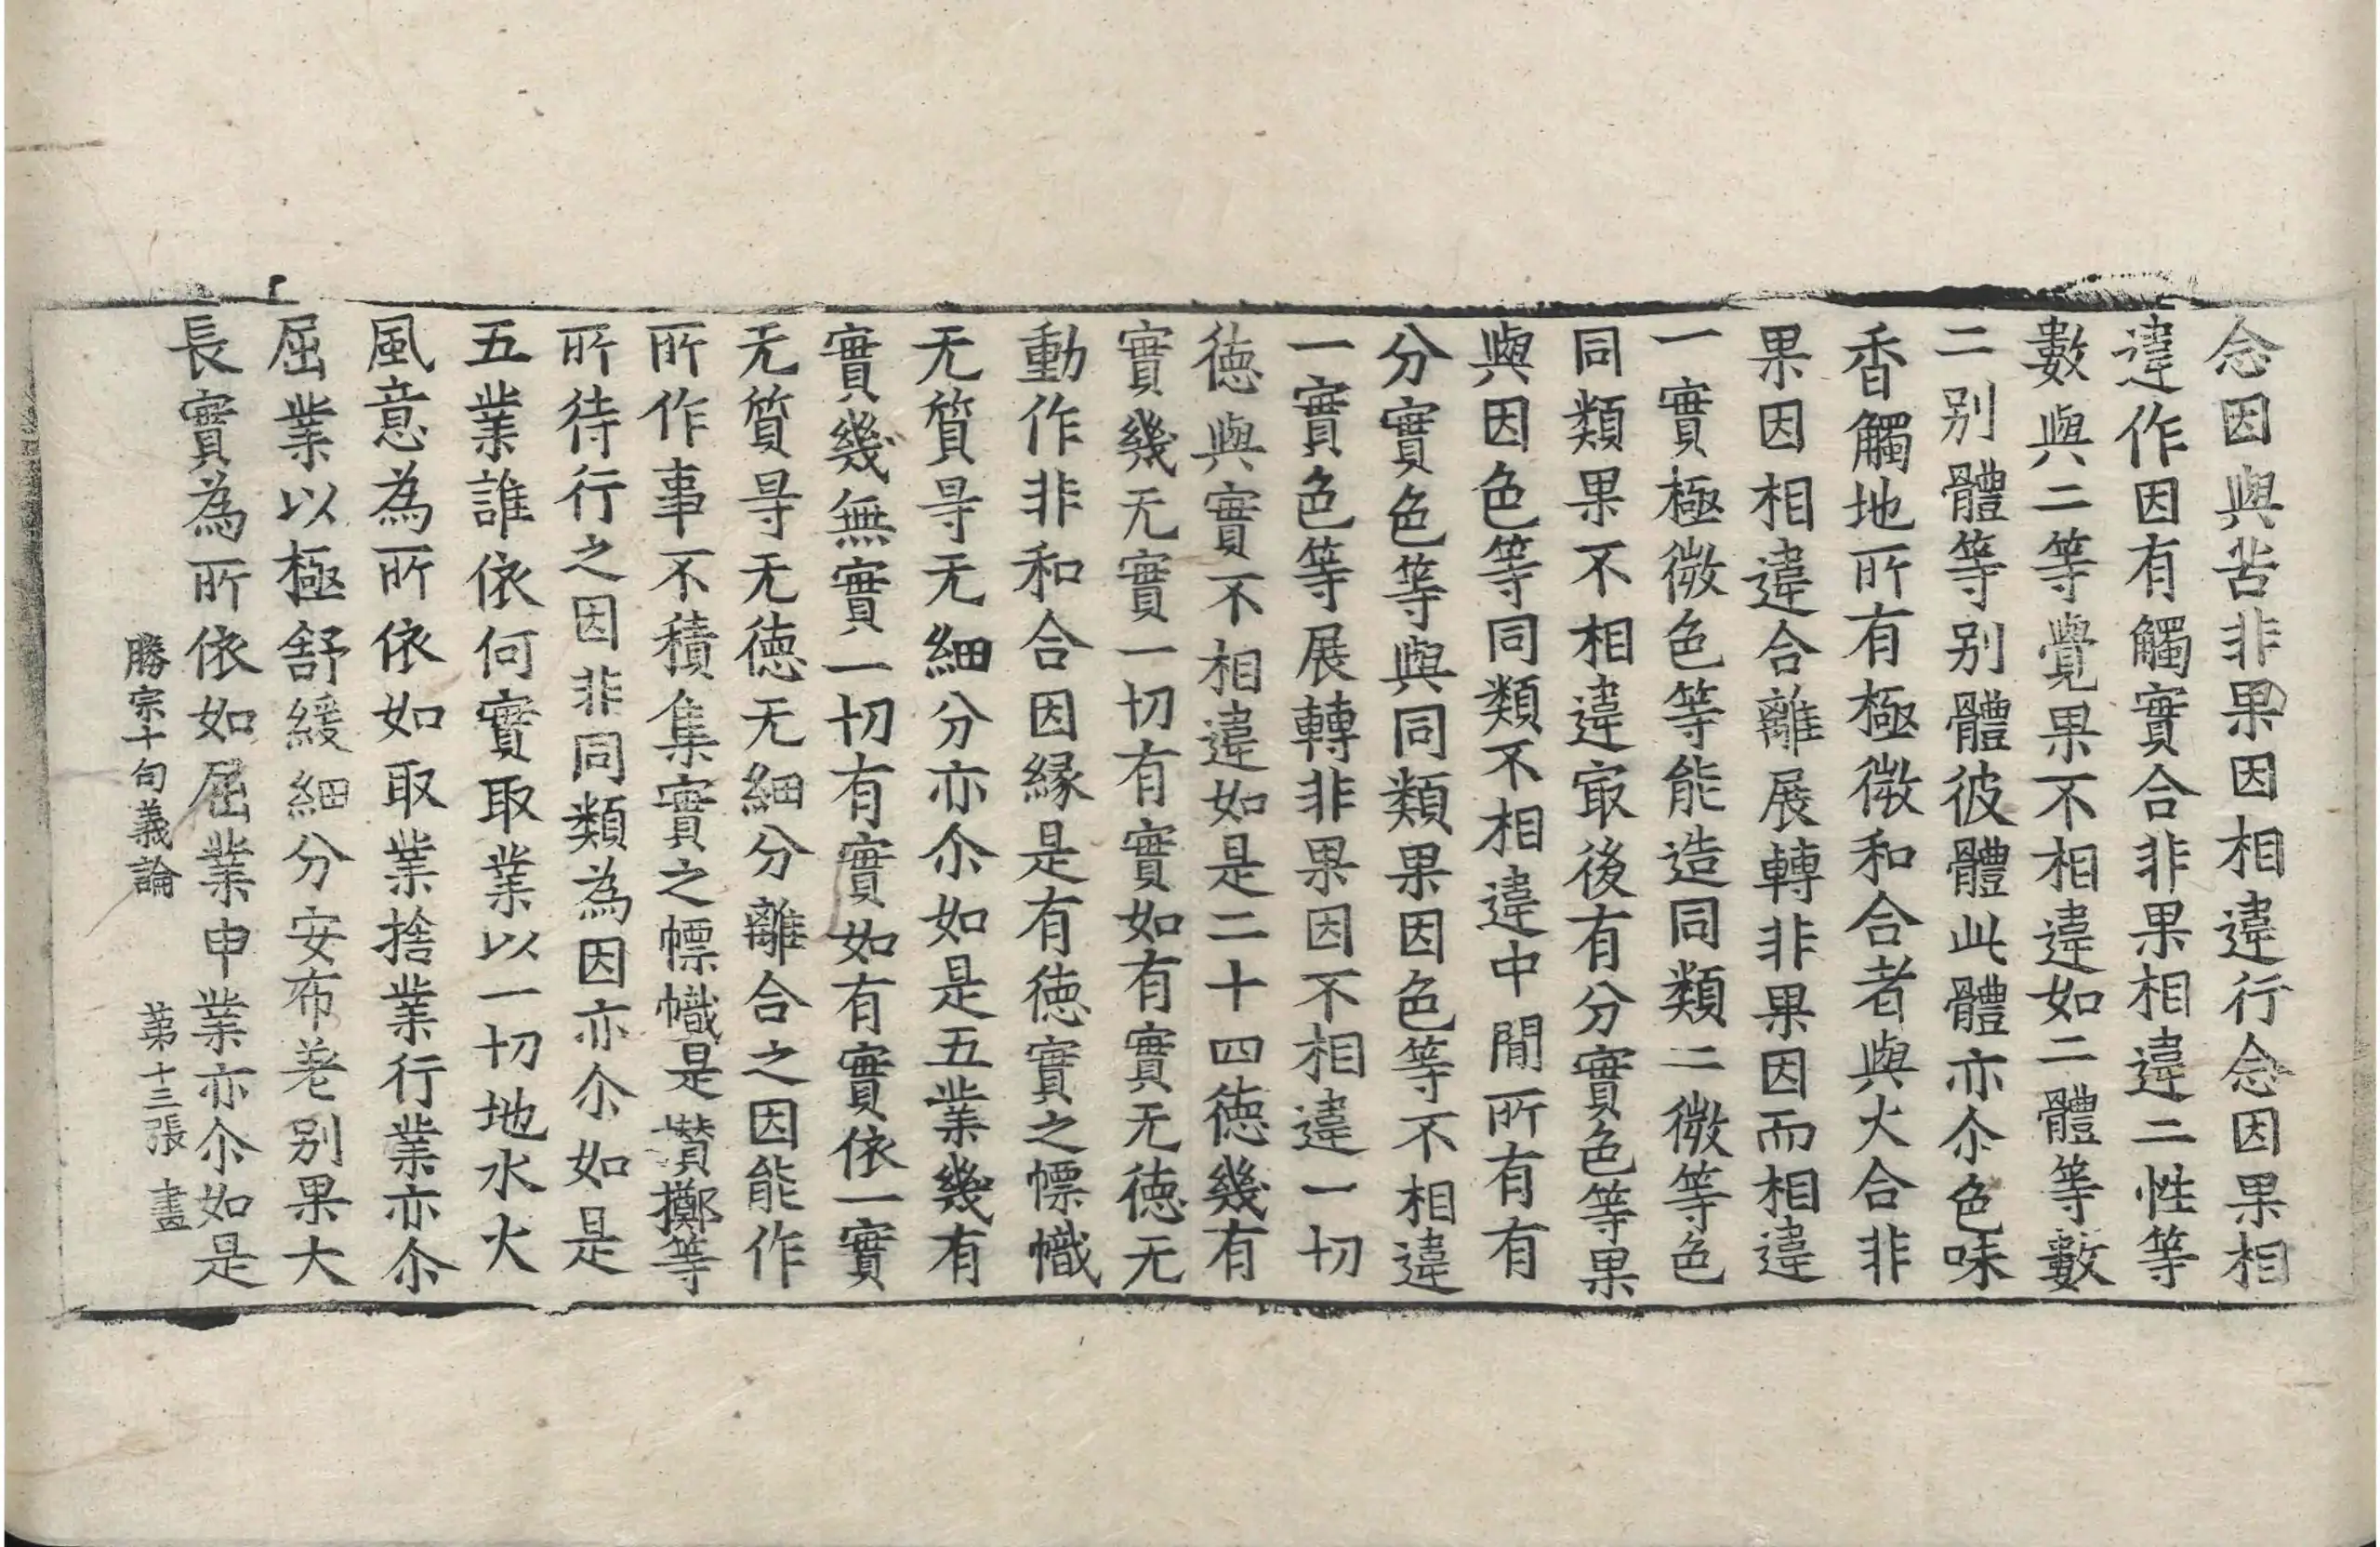 念因與苦非果因相違行念因果相
違作因有觸實合非果相違二性等
數與二等覺果不相違如二體等數
二別體等別體彼體此體亦尒色味
香觸地所有極微和合者與火合非
果因相違合離展轉非果因而相違
一實極微色等能造同類二微等色
同類果不相違㝡後有分實色等果
與因色等同類不相違中閒所有有
分實色等與同類果因色等不相違
一實色等展轉非果因不相違一切
德與實不相違如是二十四德幾有
實幾无實一切有實如有實无德无
動作非和合因緣是有德實之幖幟
无質㝵无細分亦尒如是五業幾有
實幾無實一切有實如有實依一實
无質㝵无德无細分離合之因能作
所作事不積集實之幖幟是攢擲等
所待行之因非同類為因亦尒如是
五業誰依何實取業以一切地水火
風意為所依如取業捨業行業亦尒
屈業以極舒緩細分安布差別果大
長實為所依如屈業申業亦尒如是
勝宗十句義論 苐十三張 畫